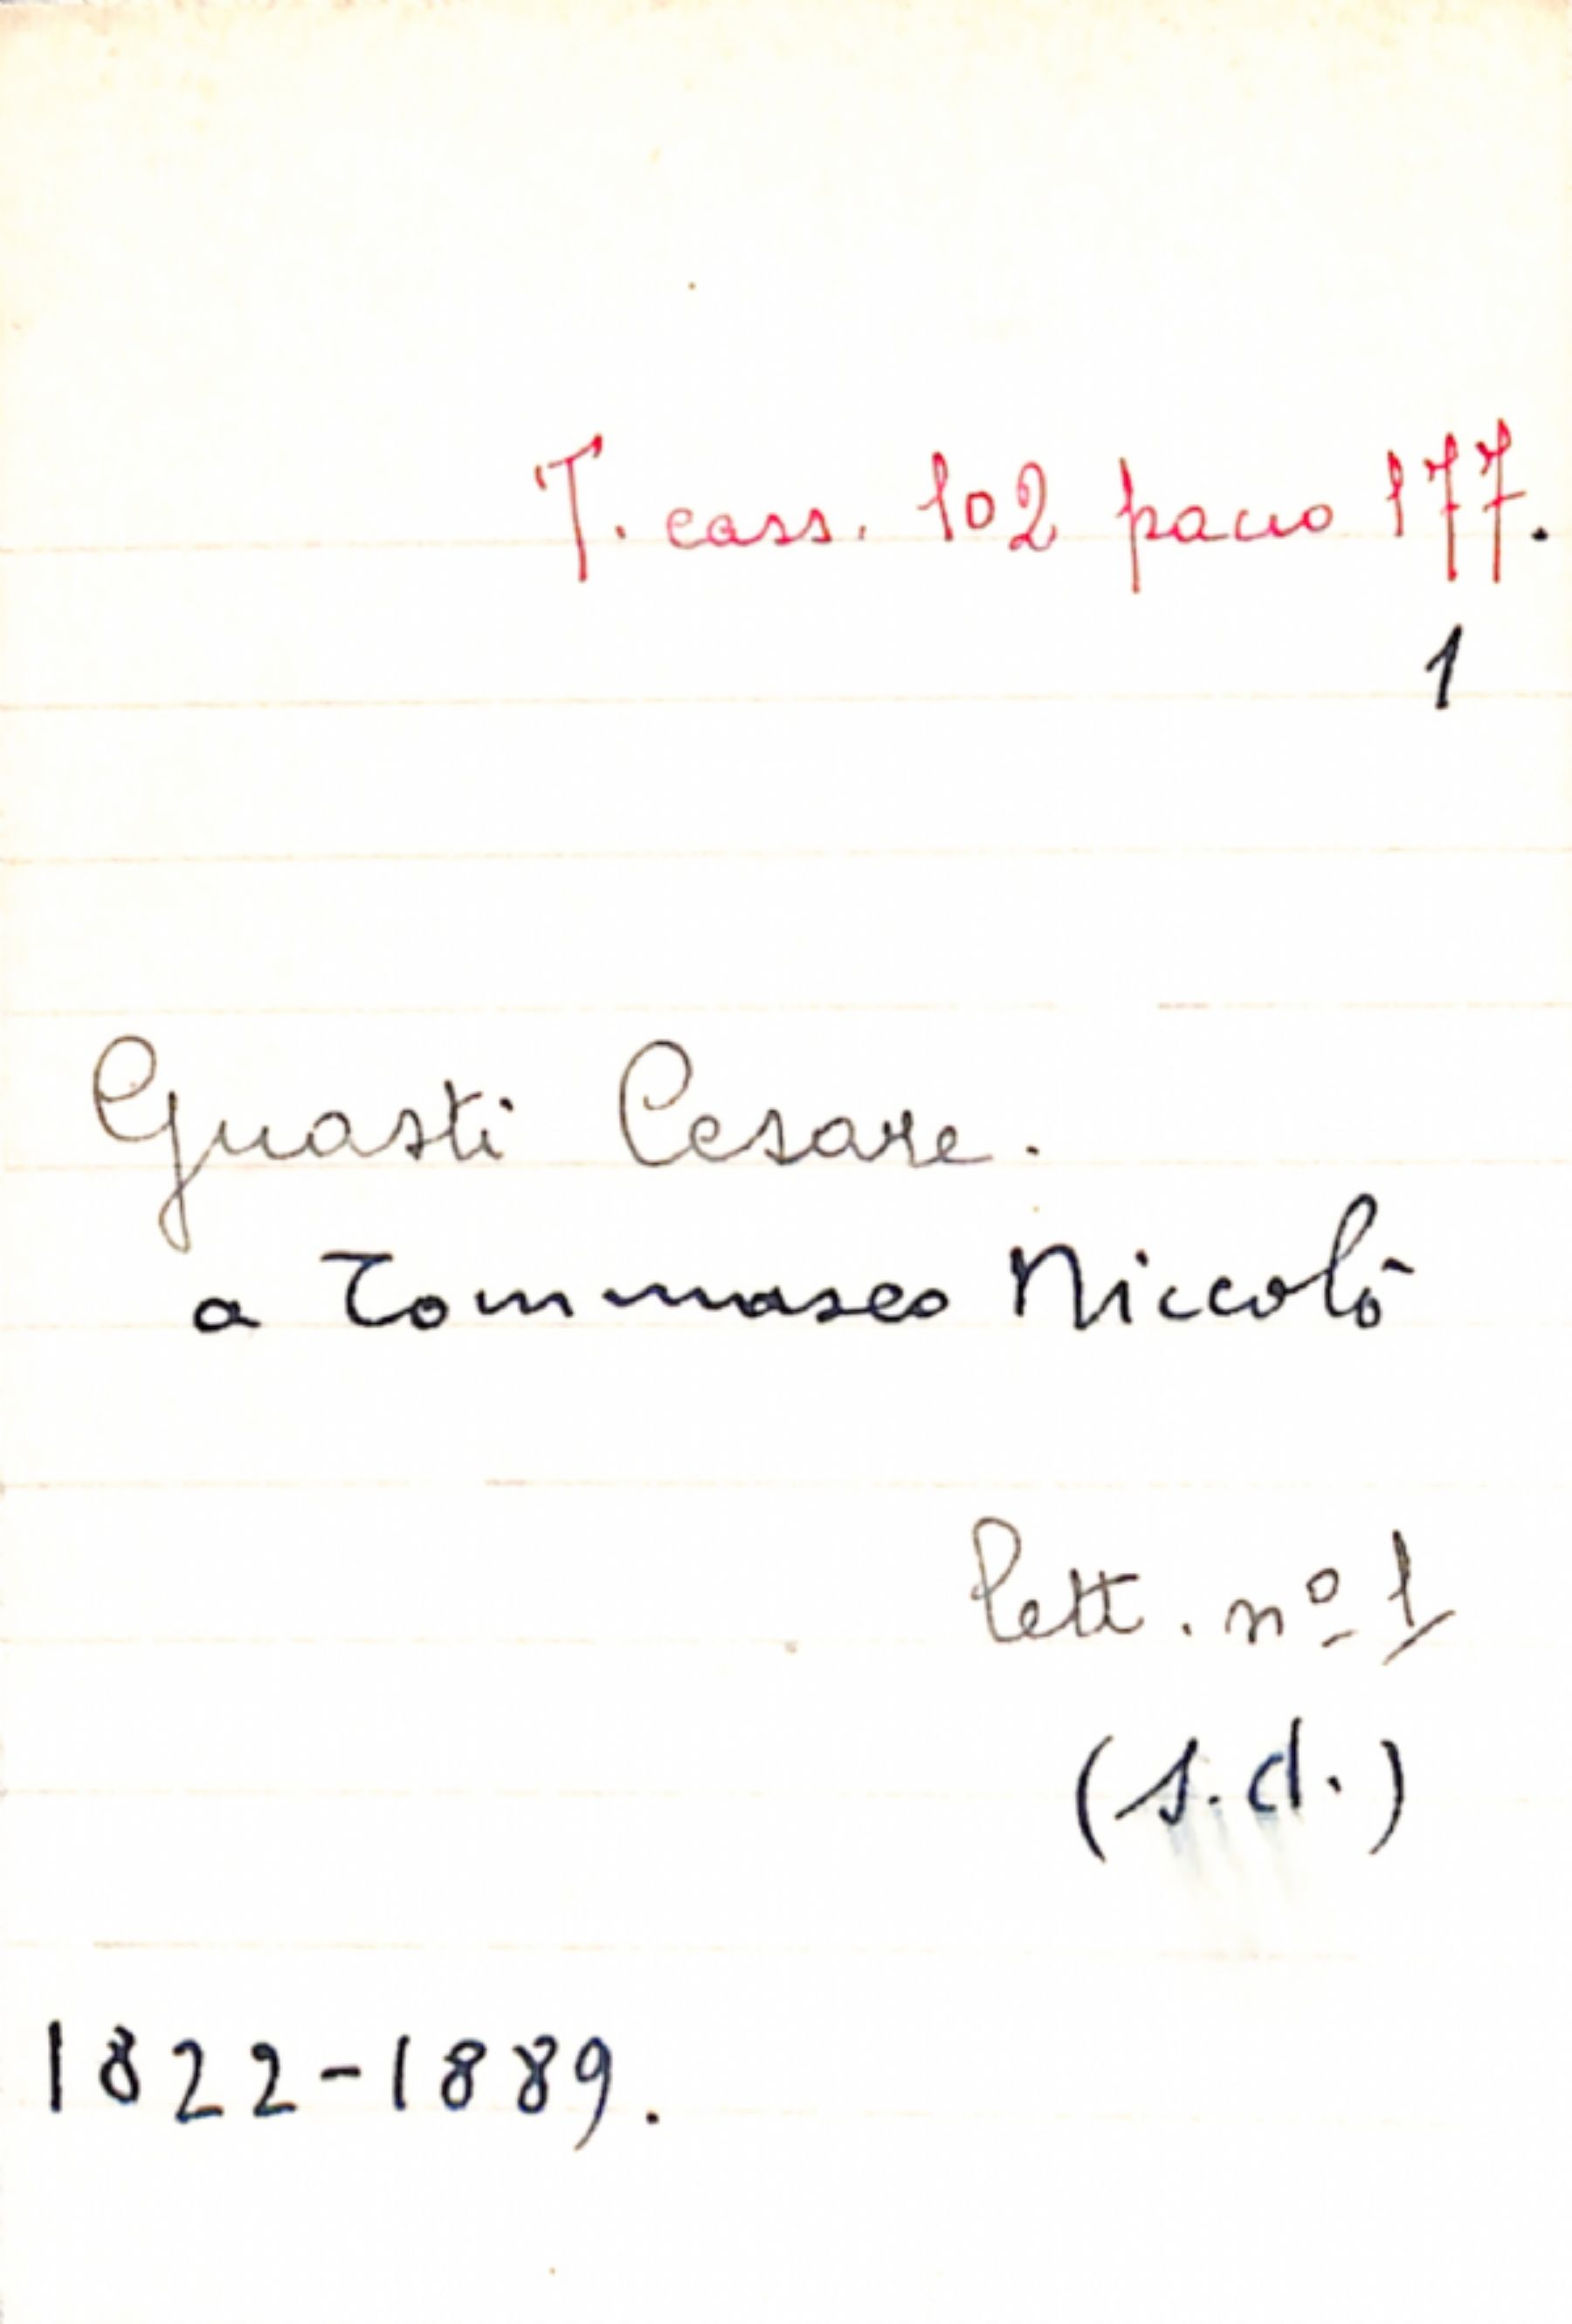 T. cass. 102 pacco 177.
1
Guasti Cesare.
a Tommaseo Niccolò
lett. nº 1
(s.d.)
1822-1889.